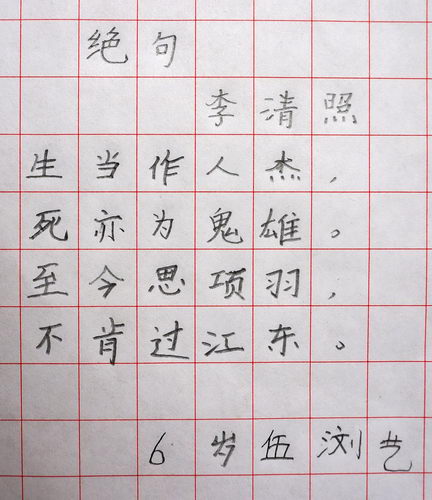 绝句
李清照
生当作人杰，
死亦为鬼雄。
至今思项羽，
不肯过江东。
6岁伍浏艺